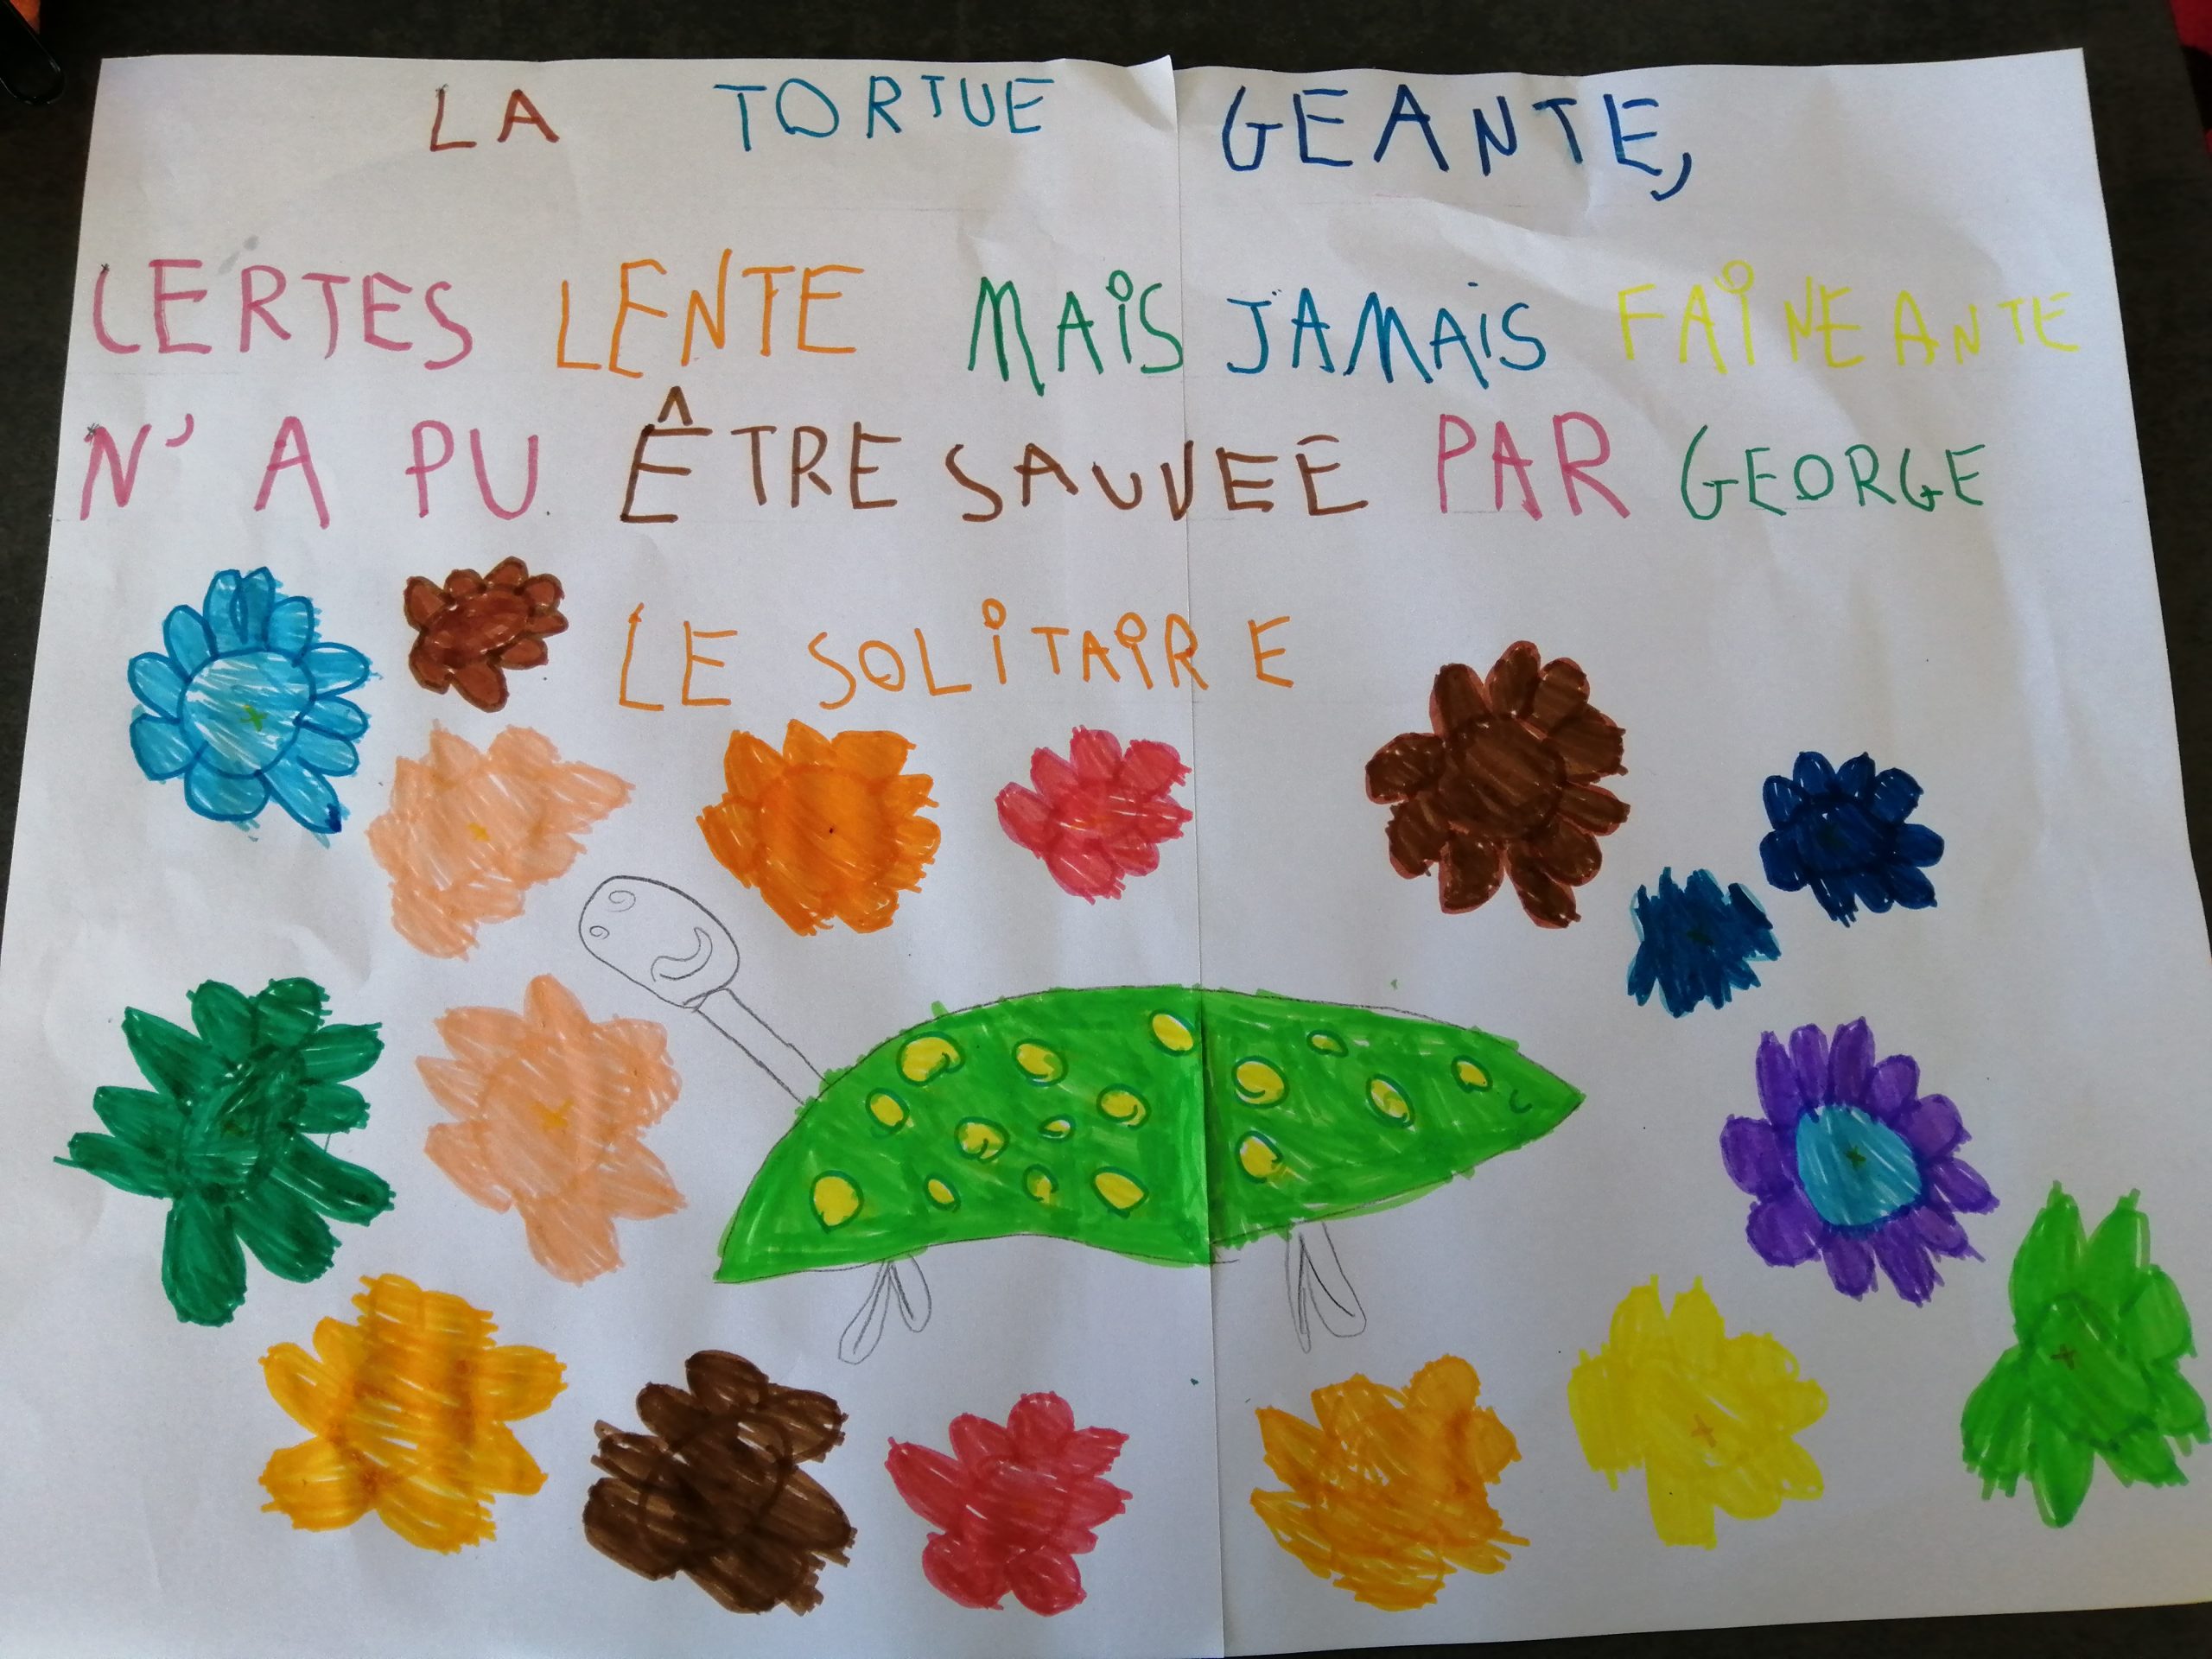 LA TORTUE GEANTE,
CERTES LENTE MAiS JAMAiS FAiNEANTE
N'A PU ÊTRE SAUVEE PAR GEORGE
LE SOLiTAiRE